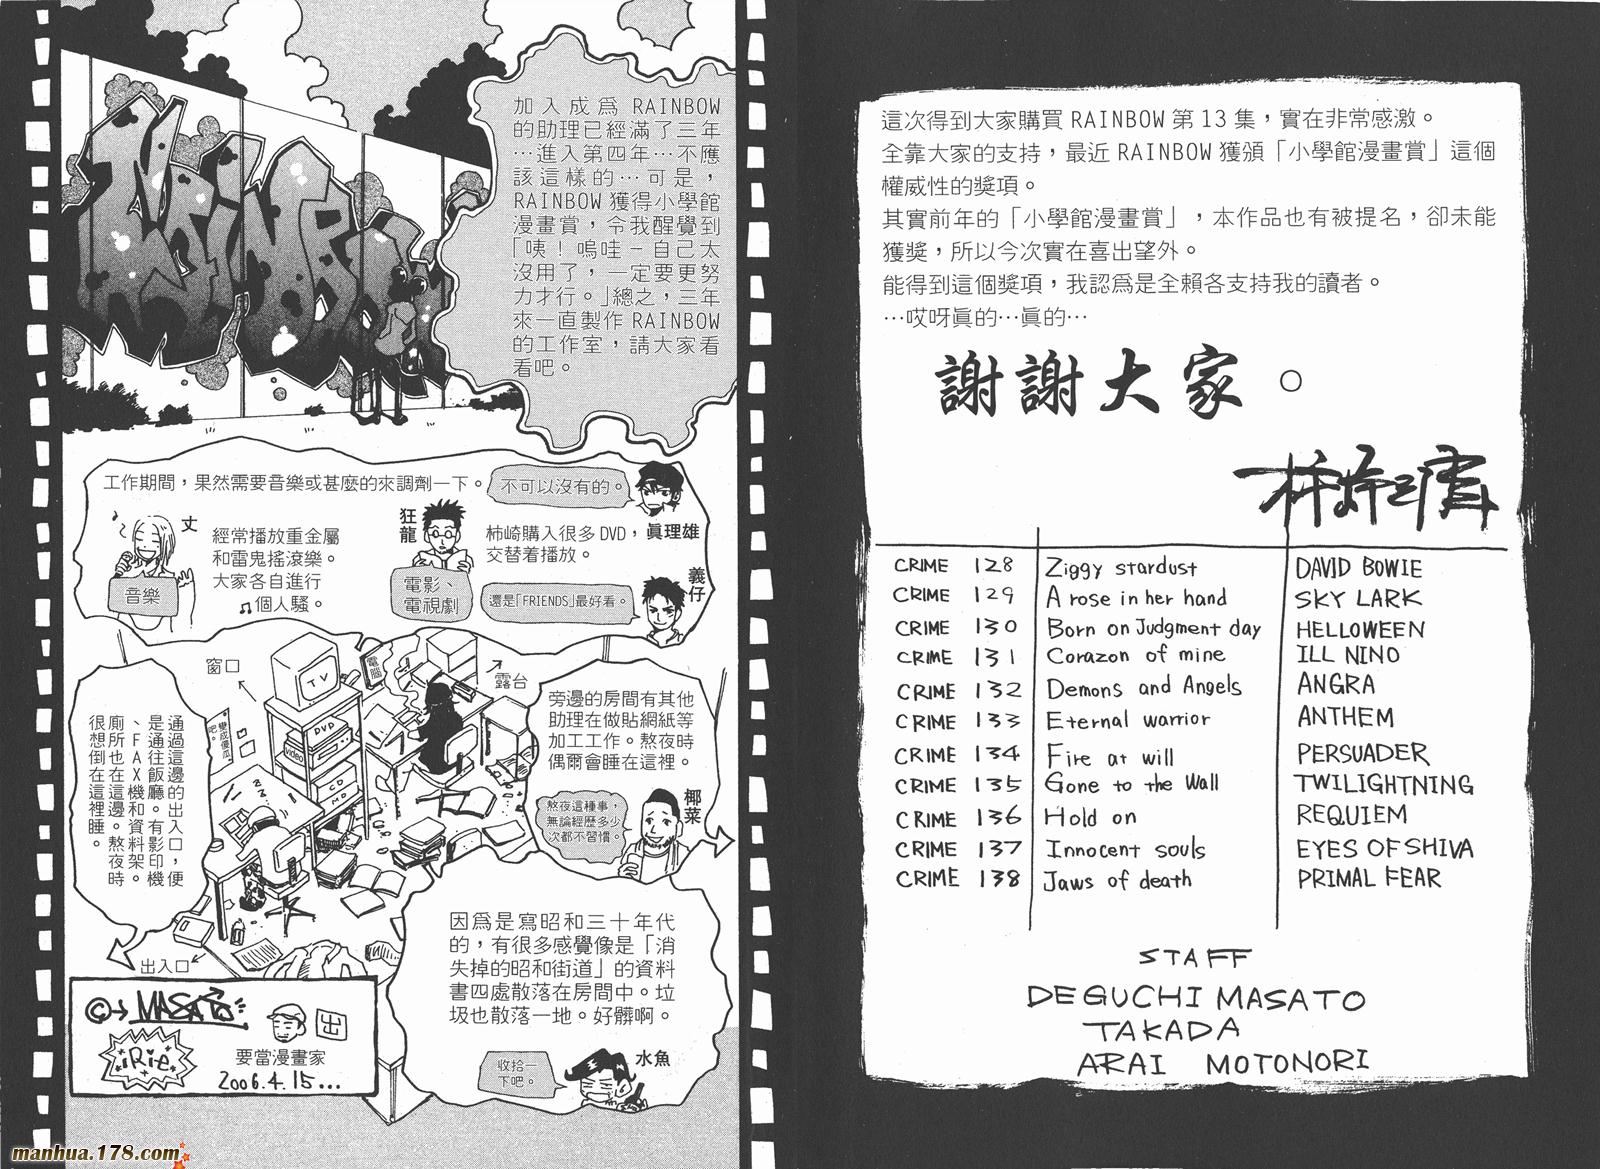 這次得到大家購買 RAINBOW 第 13 集，實在非常感激。
全靠大家的支持，最近 RAINBOW 獲頒「小學館漫畫賞」這個
權威性的獎項。
其實前年的「小學館漫畫賞」，本作品也有被提名，卻未能
獲獎，所以今次實在喜出望外。
能得到這個獎項，我認爲是全賴各支持我的讀者。
…哎呀眞的…眞的…
謝謝大家。
CRIME 128 Ziggy stardust DAVID BOWIE
CRIME 129 A rose in her hand SKY LARK
CRIME 130 Born on Judgment day HELLOWEEN
CRIME 131 Corazon of mine ILL NINO
CRIME 132 Demons and Angels ANGRA
CRIME 133 Eternal warrior ANTHEM
CRIME 134 Fire at will PERSUADER
CRIME 135 Gone to the Wall TWILIGHTNING
CRIME 136 Hold on REQUIEM
CRIME 137 Innocent souls EYES OF SHIVA
CRIME 138 Jaws of death PRIMAL FEAR
STAFF
DEGUCHI MASATO
TAKADA
ARAI MOTONORI
加入成爲 RAINBOW
的助理已經滿了三年
…進入第四年…不應
該這樣的…可是，
RAINBOW 獲得小學館
漫畫賞，令我醒覺到
「咦！嗚哇－自己太
沒用了，一定要更努
力才行。」總之，三年
來一直製作 RAINBOW
的工作室，請大家看
看吧。
工作期間，果然需要音樂或甚麼的來調劑一下。
不可以沒有的。
眞理雄
丈
經常播放重金屬
和雷鬼搖滾樂。
大家各自進行
♫個人騷。
音樂
狂龍
電影、
電視劇
柿崎購入很多 DVD，
交替着播放。
義仔
還是「FRIENDS」最好看。
窗口
TV
電腦
露台
DVD
Video
CD
MD
變成傻瓜
吧。
旁邊的房間有其他
助理在做貼網紙等
加工工作。熬夜時
偶爾會睡在這裡。
熬夜這種事，
無論經歷多少
次都不習慣。
椰菜
通過這邊的出入口，便
是通往飯廳。有影印機
、FAX機和資料架。
廁所也在這邊。熬夜時
很想倒在這裡睡。
出入口
因爲是寫昭和三十年代
的，有很多感覺像是「消
失掉的昭和街道」的資料
書四處散落在房間中。垃
圾也散落一地。好髒啊。
水魚
收拾一
下吧。
©→MASATO
出
iRie
要當漫畫家
2006.4.15...
manhua.178.com